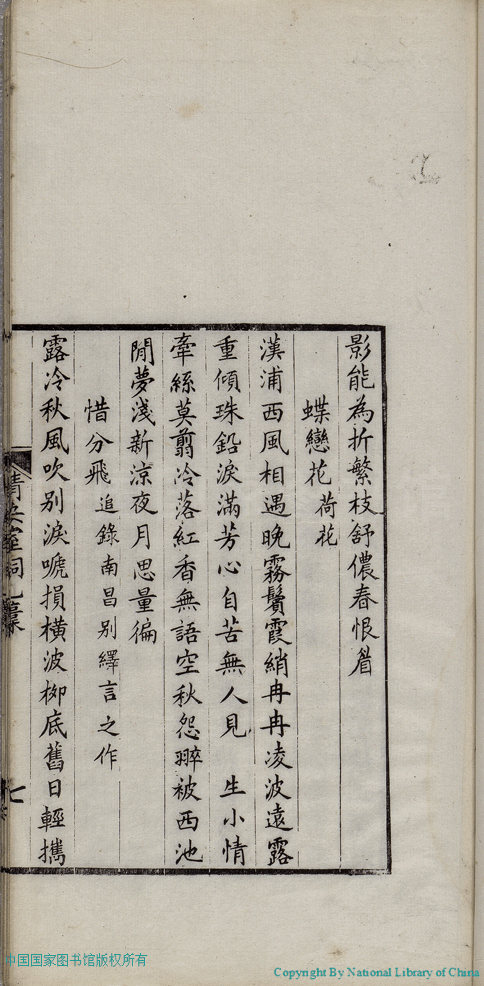 影能為折繁枝舒儂春恨眉
蝶戀花荷花
漢浦西風相遇晚霧鬢霞綃冉冉凌波遠露
重傾珠鉛淚滿芳心自苦無人見　生小情
牽絲莫翦冷落紅香無語空秋怨翠被西池
閒夢淺新涼夜月思量徧
惜分飛追錄南昌別繹言之作
露冷秋風吹別淚嗁損橫波柳底舊日輕攜
七
中国国家图书馆版权所有
Copyright By National Library of China